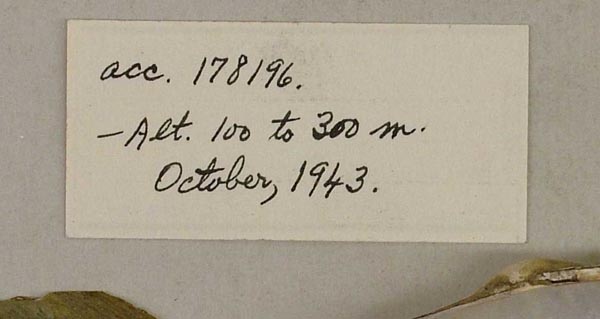 acc. 178196.
- Alt. 100 to 300 m.
October, 1943.